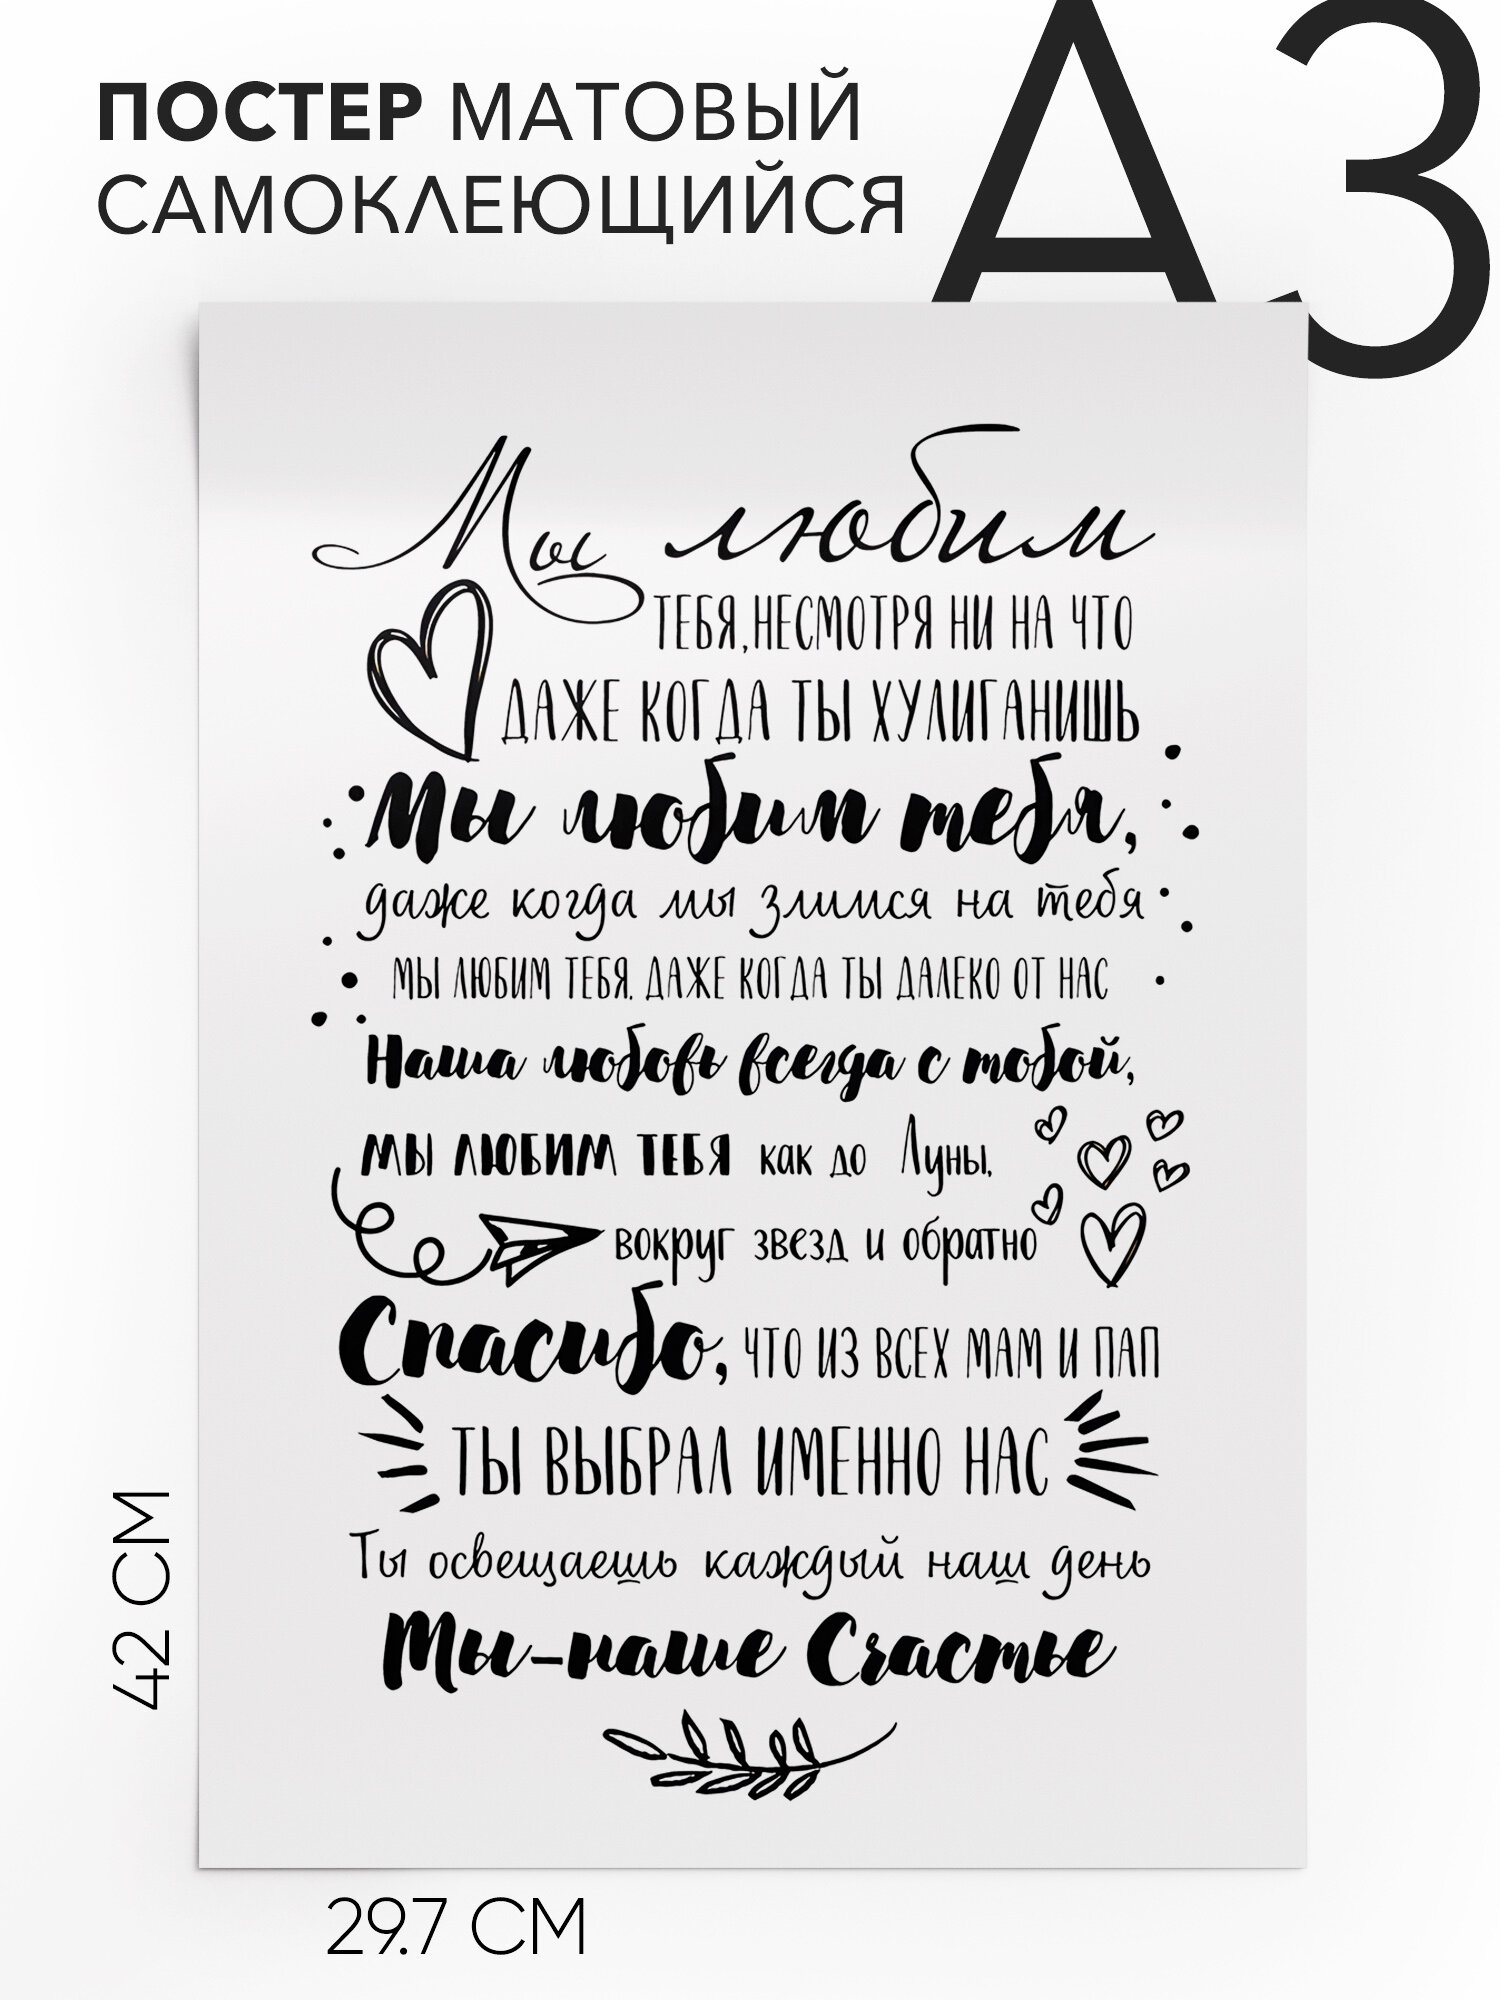 ПОСТЕР МАТОВЫЙ
САМОКЛЕЮЩИЙСЯ
А3
Мы любим
ТЕБЯ, НЕСМОТРЯ НИ НА ЧТО
ДАЖЕ КОГДА ТЫ ХУЛИГАНИШЬ
Мы любим тебя,
даже когда мы злимся на тебя
МЫ ЛЮБИМ ТЕБЯ. ДАЖЕ КОГДА ТЫ ДАЛЕКО ОТ НАС
Наша любовь всегда с тобой,
МЫ ЛЮБИМ ТЕБЯ как до Луны,
вокруг звезд и обратно
Спасибо, ЧТО ИЗ ВСЕХ МАМ И ПАП
ТЫ ВЫБРАЛ ИМЕННО НАС
Ты освещаешь каждый наш день
Мы-наше Счастье
42 СМ
29.7 СМ